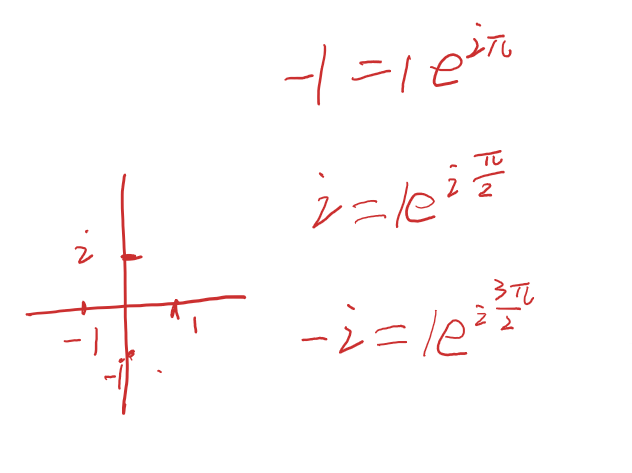 -1 = 1e^{iπ}
i = 1e^{i\frac{π}{2}}
-i = 1e^{i\frac{3π}{2}}
i
-1
1
-i